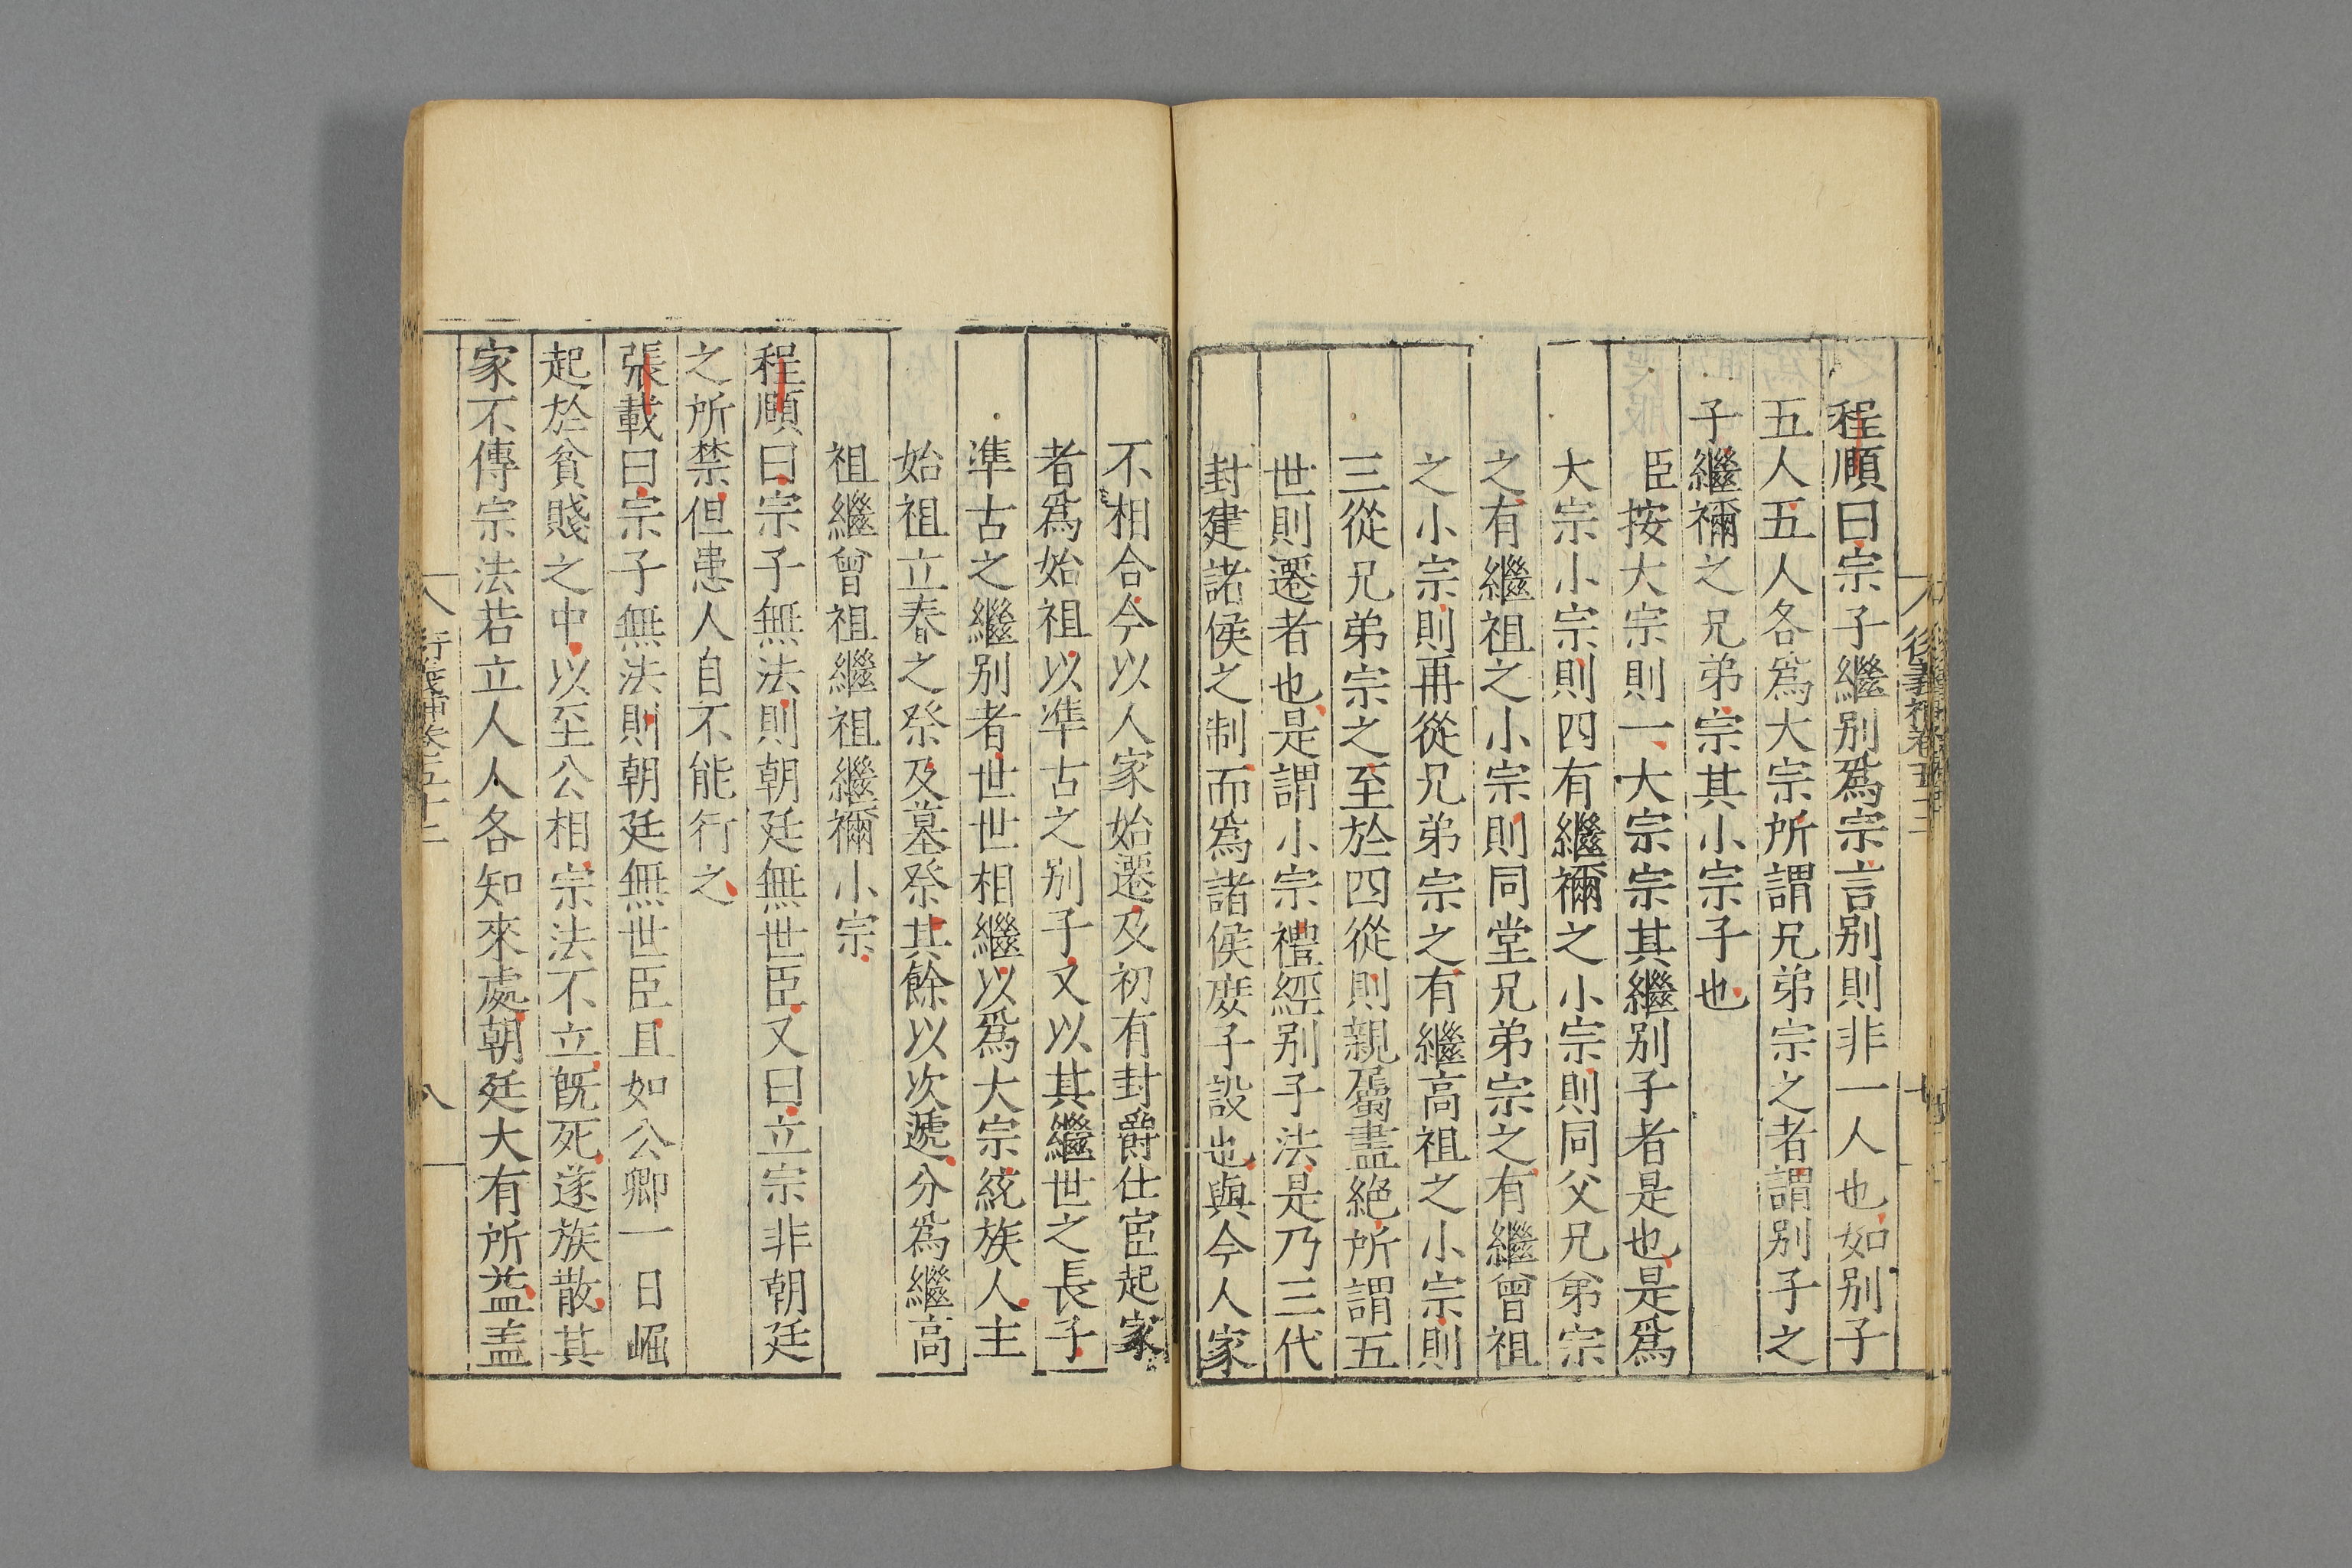 程頤曰宗子繼别爲宗言别則非一人也如别子
五人五人各爲大宗所謂兄弟宗之者謂别子之
子繼禰之兄弟宗其小宗子也
臣按大宗則一大宗宗其繼别子者是也是爲
大宗小宗則四有繼禰之小宗則同父兄弟宗
之有繼祖之小宗則同堂兄弟宗之有繼曾祖
之小宗則再從兄弟宗之有繼高祖之小宗則
三從兄弟宗之至於四從則親屬盡絶所謂五
世則遷者也是謂小宗禮經别子法是乃三代
封建諸侯之制而爲諸侯庶子設也與今人家
不相合今以人家始遷及初有封爵仕宦起家
者爲始祖以準古之别子又以其繼世之長子
準古之繼别者世世相繼以爲大宗統族人主
始祖立春之祭及墓祭其餘以次遞分爲繼高
祖繼曾祖繼祖繼禰小宗
程頤曰宗子無法則朝廷無世臣又曰立宗非朝廷
之所禁但患人自不能行之
張載曰宗子無法則朝廷無世臣且如公卿一日崛
起於貧賤之中以至公相宗法不立旣死遂族散其
家不傳宗法若立人人各知來處朝廷大有所益盖